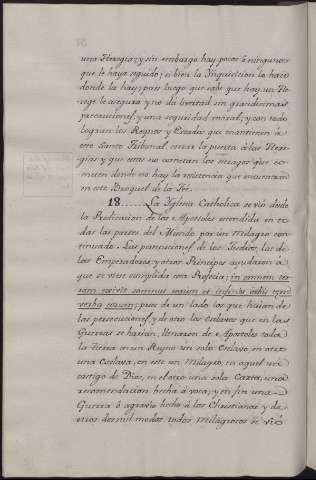 una Heregia; y sin embargo hay pocos ò ningunos
que le haya seguido; si bien la Inquisicion la hace
donde la hay; pues luego que sabe que hay un He-
rege le asegura y no da livertad sin grandisimas
precauciones, y una seguridad moral; y con todo
logran los Reynos y Estados que mantienen à
este Santo Tribunal cerrar la puerta à las Here-
gias y que estas no cometan los estragos que co-
meten donde no hay la resistencia que encuentran
en este Broquel de la Fé.
18. La Iglesia Catholica se vió desde
la Predicacion de los Apostoles estendida en to-
das las partes del Mundo por un milagro con-
tinuado. Las persecuciones de los Judios, las de
los Emperadores, y otros Principes ayudaron à
que se viese cumplida esta Profecia; in omnem ter-
ram exivit sonnus eorum et infines orbis terræ
verba eorum; pues de un lado los que huian de
las persecuciones, y de otro los Esclavos que en las
Guerras se hacian, llenaron de Apostoles toda
la tierra en un Reyno un solo Esclavo, en otro
una Esclava, en este un Milagro, en aquel un
castigo de Dios, en el otro una sola Carta, una
recomendacion hecha à voca; y en fin una
Guerra ò agravio hecho à los Christianos y de
otros dos mil modos todos milagrosos se vió